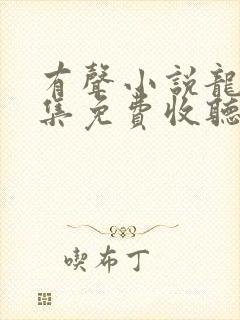 有聲小説龍
集免費收聽
喫布丁